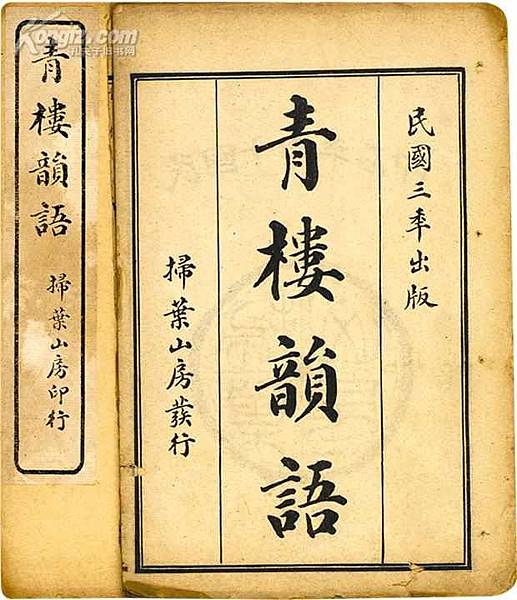 Kongfz.com
孔夫子旧书网
民國三年出版
青樓韻語
掃葉山房發行
青樓韻語
掃葉山房印行